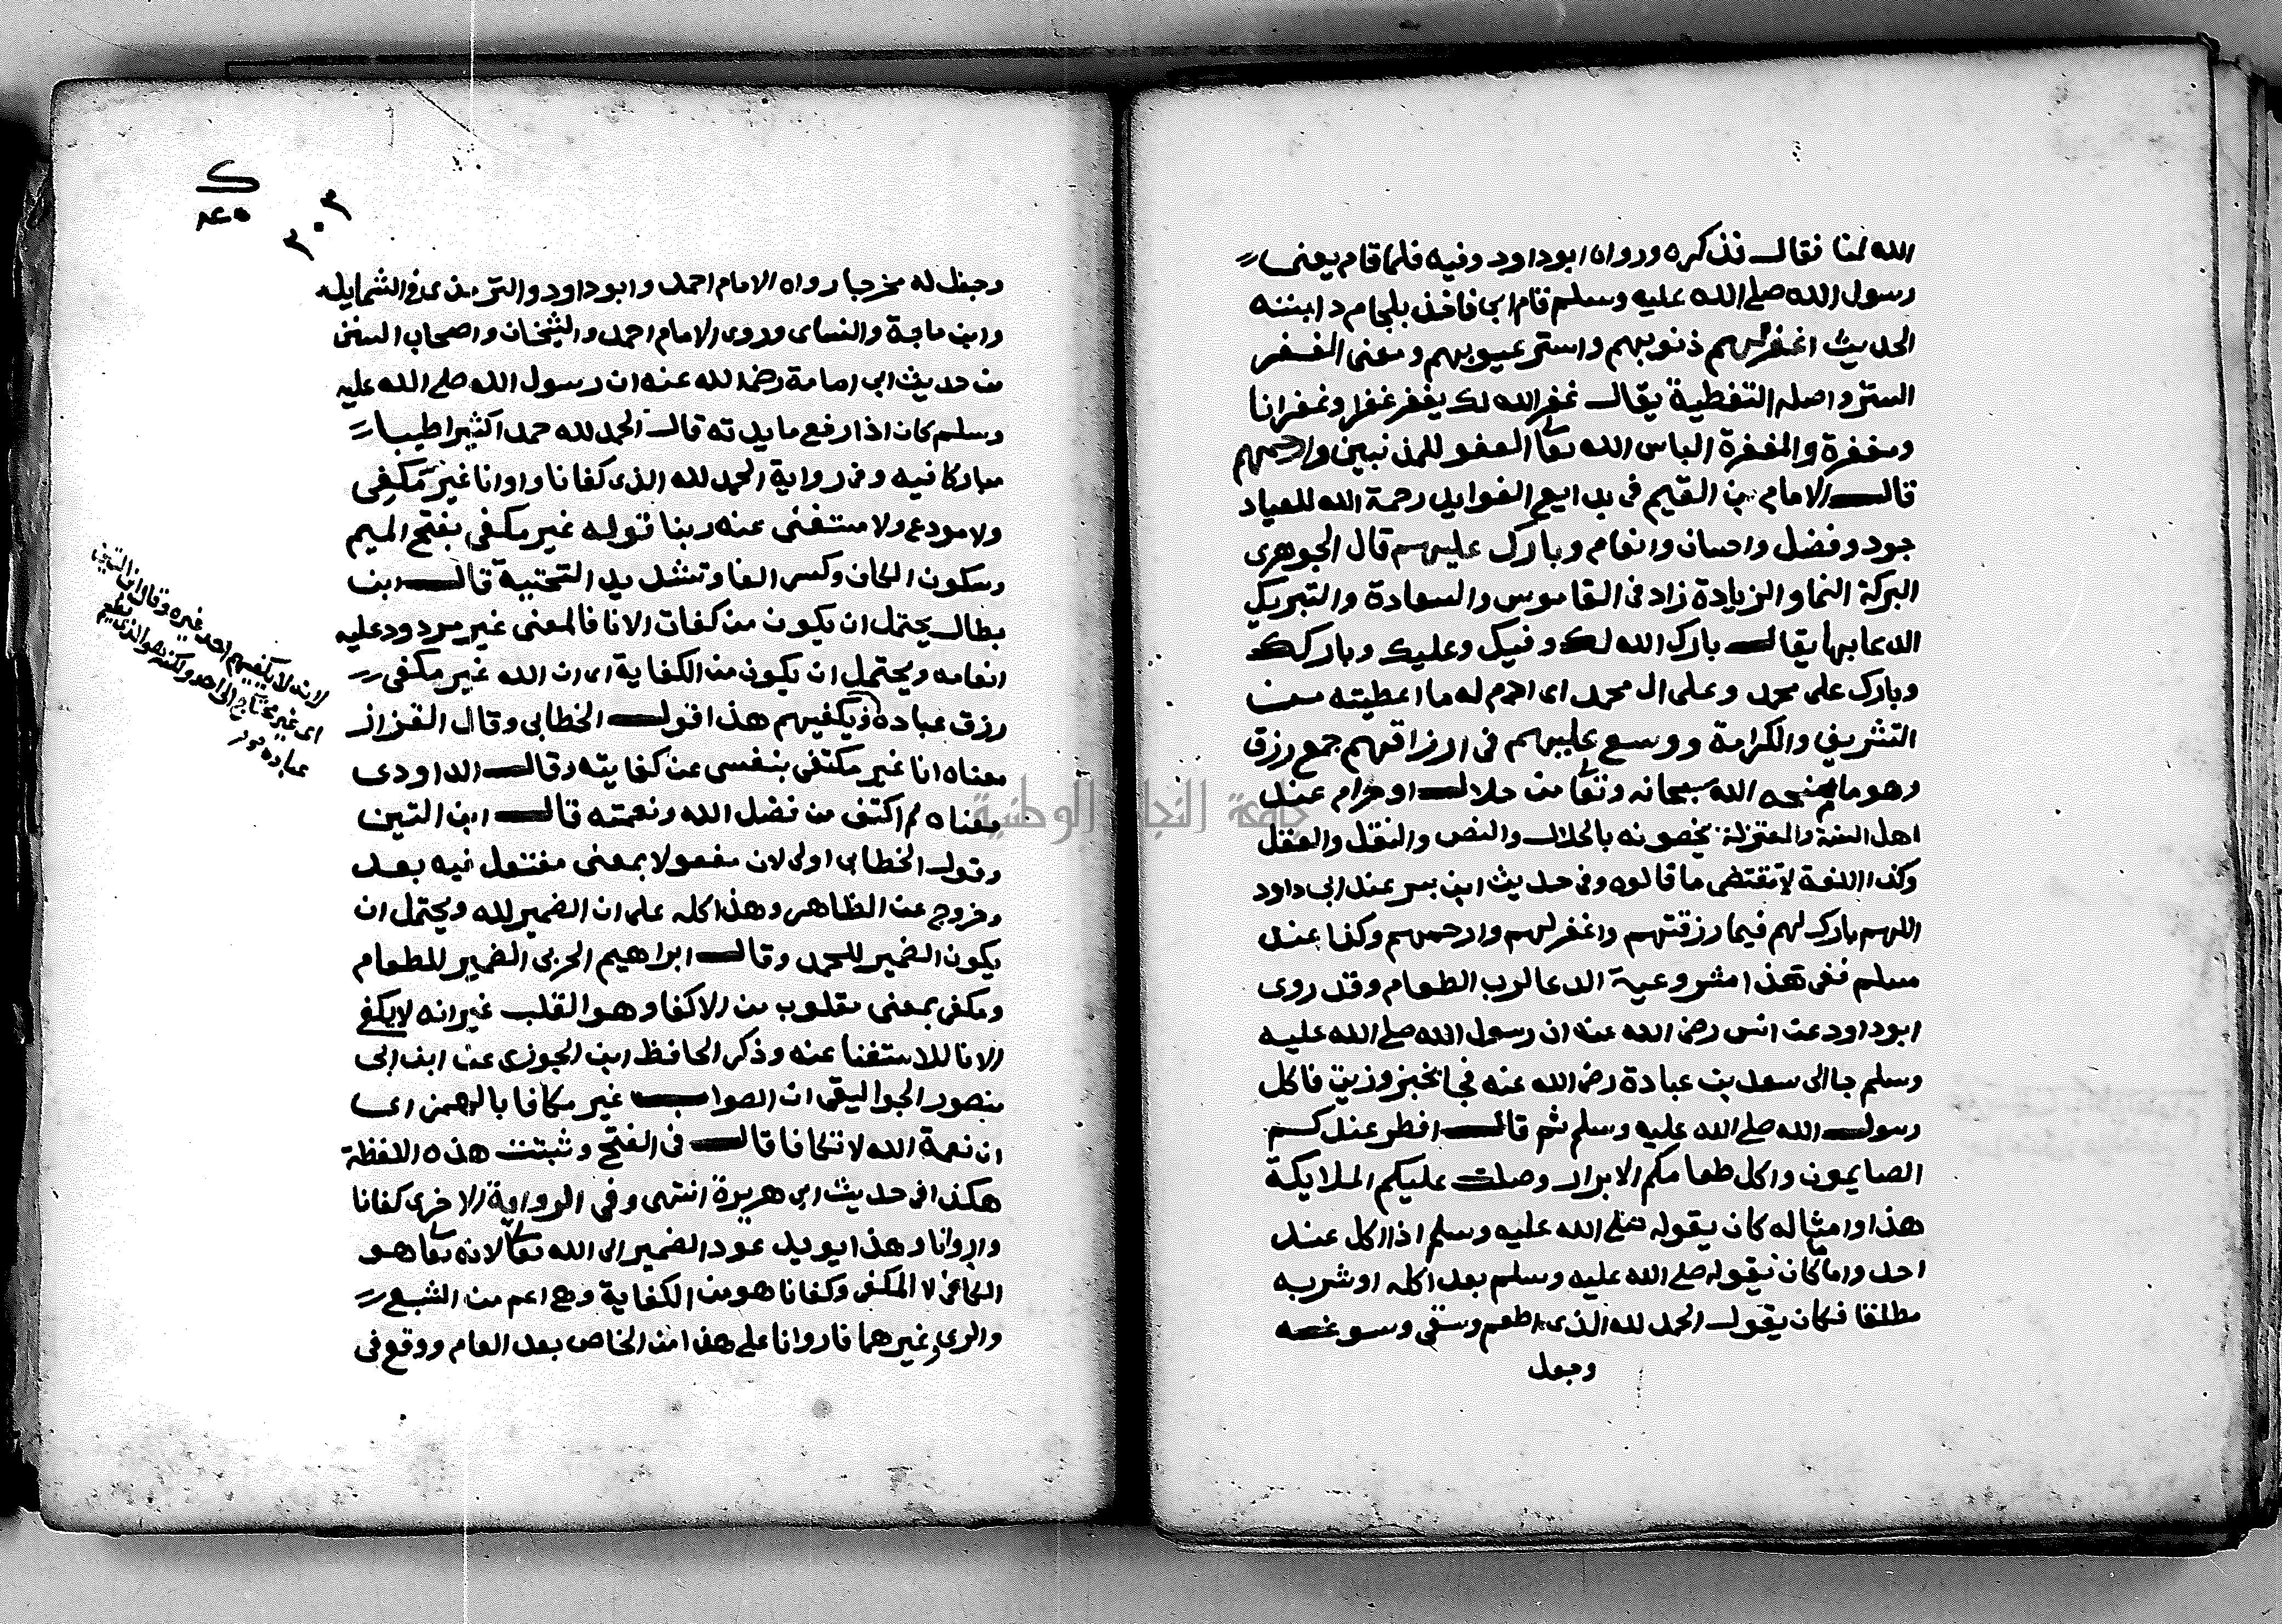 الله لنا فقال فذكره ورواه ابو داود وفيه فلما قام يعنى
رسول الله صلى الله عليه وسلم قام ابى فاخذ بلجام دابته
الحديث اغفر لهم ذنوبهم واستر عيوبهم ومعنى الغفر
الستر واصله التغطية يقال غفر الله لك يغفر غفرا وغفرانا
ومغفرة والمغفرة الباس الله تعا العفو للمذنبين وارحمهم
قال الامام بن القيم فى بدايع الفوايد رحمة الله للعباد
جود وفضل واحسان وانعام وبارك عليهم قال الجوهرى
البركة النما والزيادة زاد فى القاموس والسعادة والتبريك
الدعا بها يقال بارك الله لك وفيك وعليك وباركك
وبارك على محمد وعلى ال محمد اى ادم له ما اعطيته من
التشريف والكرامة ووسع عليهم فى ارزاقهم جمع رزق
وهو ما يمنحه الله سبحانه وتعا من حلال او حرام عند
اهل السنة والمعتزلة يخصونه بالحلال والنص والنقل والعقل
وكذا اللغة لا تقتضى ما قالوه وفى حديث ابن بسر عند ابى داود
اللهم بارك لهم فيما رزقتهم واغفر لهم وارحمهم وكذا عند
مسلم ففى هذا مشروعية الدعا لرب الطعام وقد روى
ابو داود عن انس رضى الله عنه ان رسول الله صلى الله عليه
وسلم جا الى سعد بن عبادة رضى الله عنه فجا بخبز وزيت فاكل
رسول الله صلى الله عليه وسلم ثم قال افطر عندكم
الصايمون واكل طعامكم الابرار وصلت عليكم الملايكة
هذا او امثاله كان يقوله صلى الله عليه وسلم اذا اكل عند
احد واما ما كان يقوله صلى الله عليه وسلم بعد اكله او شربه
مطلقا فكان يقول الحمد لله الذى اطعم وسقى وسوغه
وجعل
ك
٨٤٥
٣٠٣
وجعل له مخرجا رواه الامام احمد وابو داود والترمذى فى الشمايل
وابن ماجة والنساى وروى الامام احمد والشيخان واصحاب السنن
من حديث ابى امامة رضى الله عنه ان رسول الله صلى الله عليه
وسلم كان اذا رفع مايدته قال الحمد لله حمدا كثيرا طيبا
مباركا فيه وفى رواية الحمد لله الذى كفانا واوانا غير مكفى
ولا مودع ولا مستغنى عنه ربنا قوله غير مكفى بفتح الميم
وسكون الكاف وكسر الفا وتشديد التحتية قال ابن
بطال يحتمل ان يكون من كفات الانا فالمعنى غير مردود عليه
انعامه ويحتمل ان يكون من الكفاية اى ان الله غير مكفى
رزق عباده ويكفيهم هذا قول الخطابى وقال القزاز
معناه انا غير مكتفى بنفسى عن كفايته وقال الداودى
معناه لم اكتف من فضل الله ونعمته قال ابن التين
وقول الخطابى اولى لان مفعولا بمعنى مفتعل فيه بعد
وخروج عن الظاهر وهذا كله على ان الضمير لله ويحتمل ان
يكون الضمير للحمد وقال ابراهيم الحربى الضمير للطعام
ومكفى بمعنى مقلوب من الاكفا وهو القلب غير انه لا يكفى
الانا للاستغنا عنه وذكر الحافظ ابن الجوزى عن ابن ابى
منصور الجواليقى ان الصواب غير مكافا بالهمز اى
ان نعمة الله لا تكافا قال فى الفتح وثبتت هذه اللفظة
هكذا فى حديث ابى هريرة انتهى وفى الرواية الاخرى كفانا
واروانا وهذا يويد عود الضمير الى الله تعا لانه تعا هو
الكافى لا المكفى وكفانا هو من الكفاية وهى اعم من الشبع
والرى وغيرهما فاروانا على هذا من الخاص بعد العام ووقع فى
لانه لا يكفيهم احد غيره وقال ابن التين
اى غير محتاج الى احد ولكنه هو الذى يطعم
عباده
جامعة النجاح الوطنية